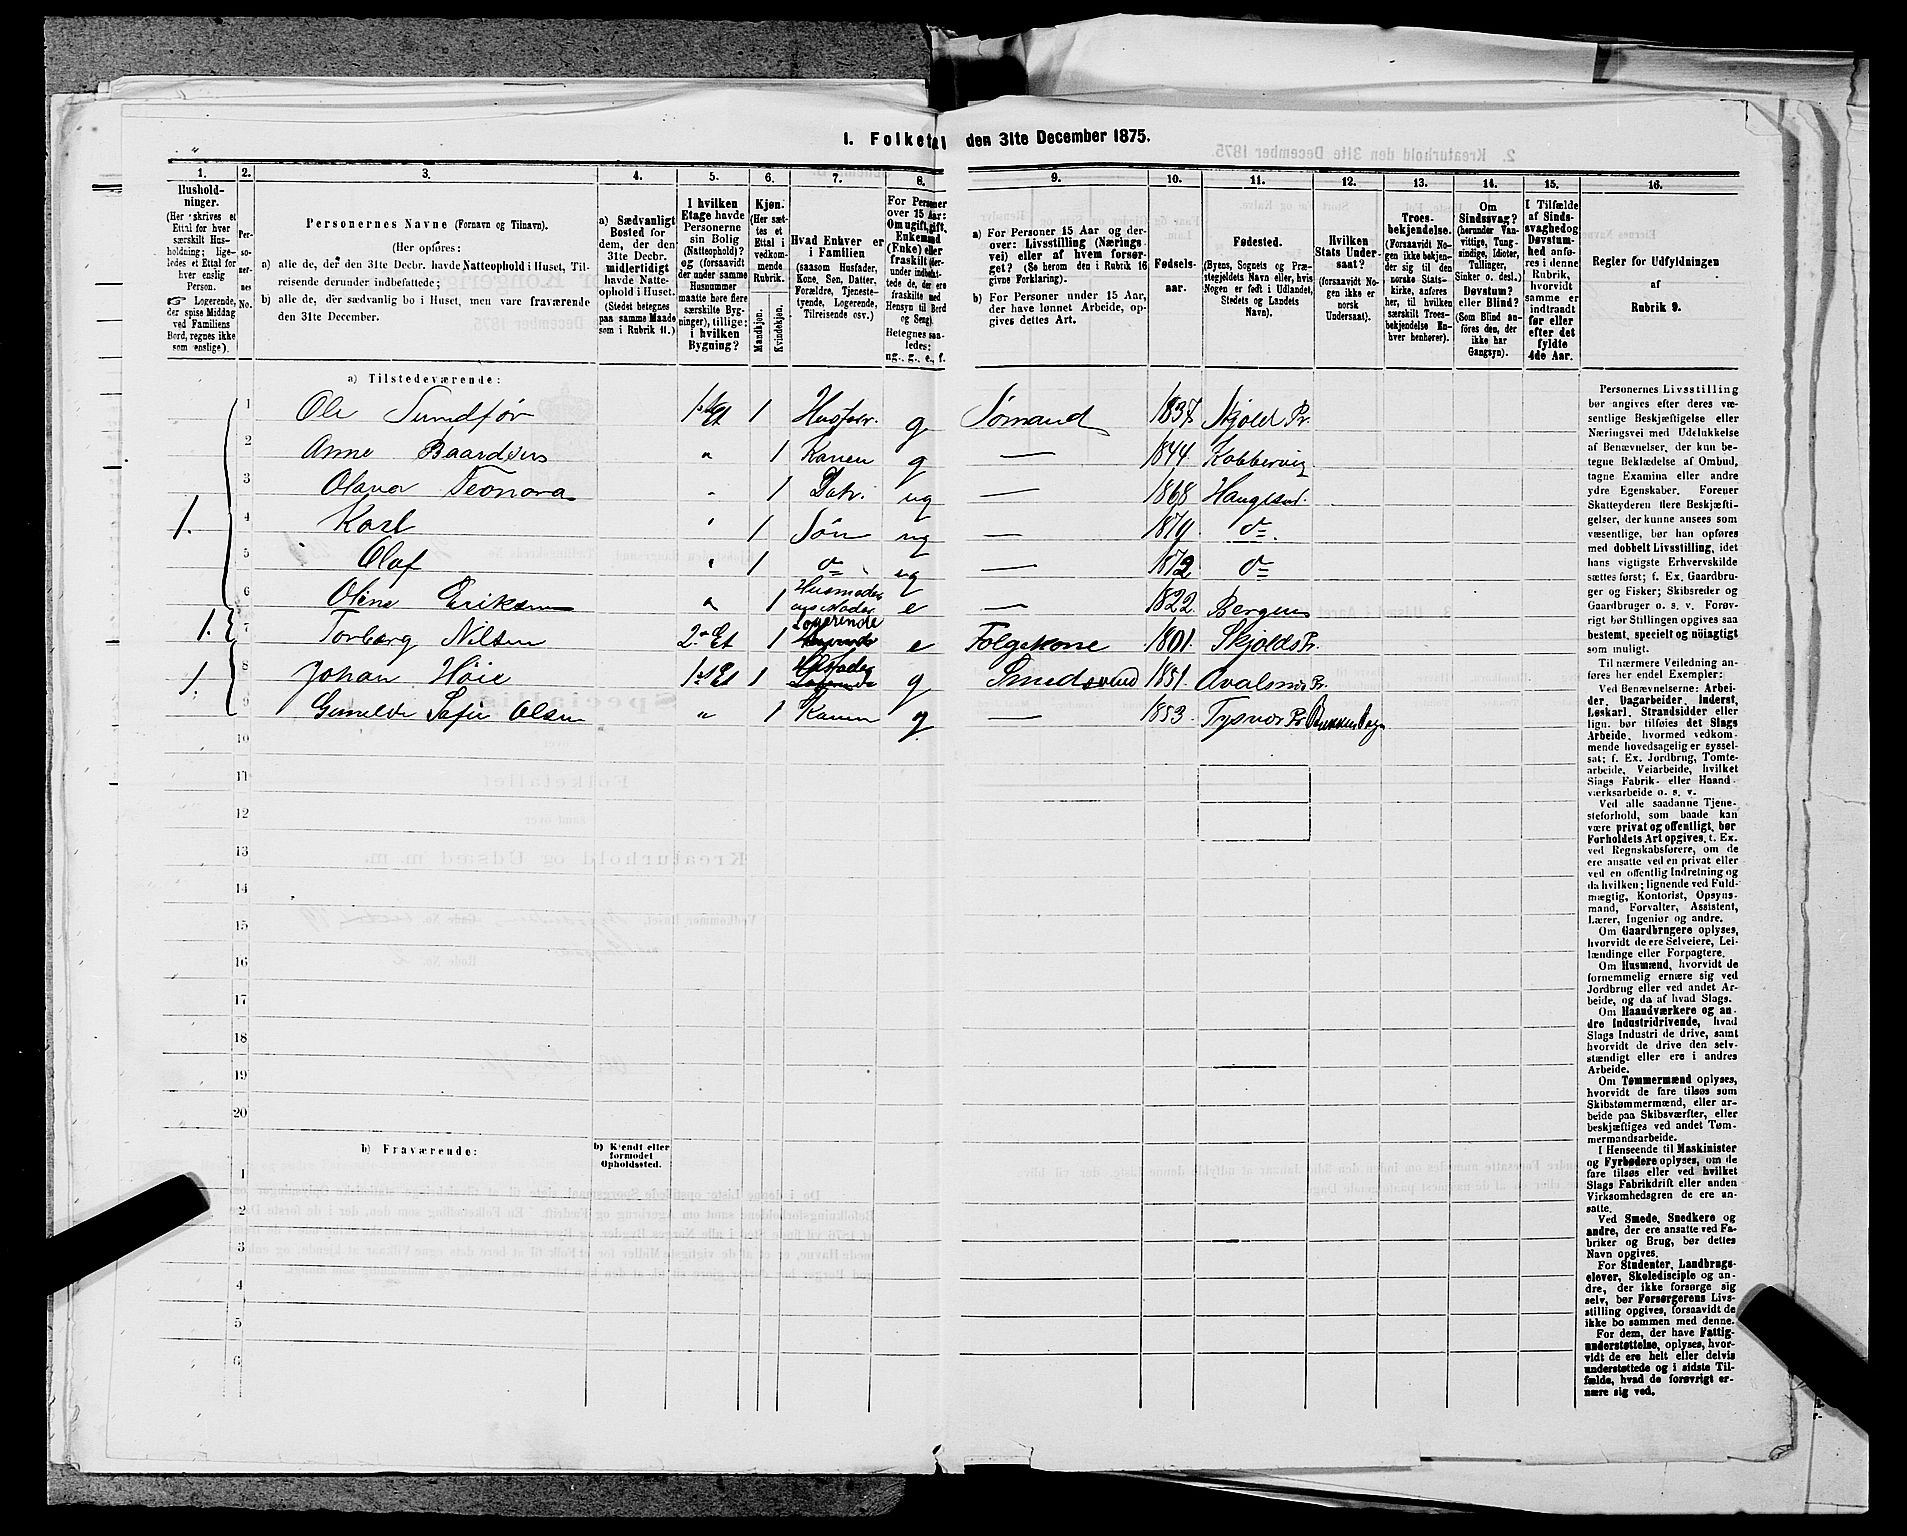 1. Folketal den 31te December 1875.
1. 2. 3. 4. 5. 6. 7. 8. 9. 10. 11. 12. 13. 14. 15. 16.
Hushold-
ninger.
(Her skrives et
Ettal for hver
særskilt Hus-
holdning; lige-
ledes et Ettal for
hver enslig
Person.
Logerende,
der spise Middag
ved Familiens
Bord, regnes ikke
som enslige).
Per-
so-
ner-
nes
No.
Personernes Navne (Fornavn og Tilnavn).
(Her opføres:
a) alle de, der den 31te Decbr. havde Natteophold i Huset, Til-
reisende derunder indbefattede;
b) alle de, der sædvanlig bo i Huset, men vare fraværende
den 31te December.
a) Sædvanligt
Bosted for
dem, der den
31te Decbr.
midlertidigt
havde Natte-
ophold i Huset.
(Stedet betegnes
paa samme Maade
som i Rubrik 11.)
I hvilken
Etage havde
Personerne
sin Bolig
(Natteophold)?
og (forsaavidt
der under samme
Husnummer
maatte høre flere
særskilte Byg-
ninger), tillige:
i hvilken
Bygning?
Kjøn.
(Her sæt-
tes et
Ettal i
vedkom-
mende
Rubrik.
Mandkjøn.
Kvindekjøn.
Hvad Enhver er
i Familien
(saasom Husfader,
Kone, Søn, Datter,
Forældre, Tjeneste-
tyende, Logerende,
Tilreisende osv.)
For Personer
over 15 Aar:
Om ugift, gift,
Enkemand
(Enke) eller
fraskilt
Hensyn til Bord
og Seng).
Betegnes saa-
ledes:
ug., g., e., f.
a) For Personer 15 Aar og der-
over: Livsstilling (Nærings-
vei) eller af hvem forsør-
get? (Se herom den i Rubrik 16
givne Forklaring).
b) For Personer under 15 Aar,
der have lønnet Arbeide, op-
gives dettes Art.
Fødsels-
aar.
Fødested.
(Byens, Sognets og Præ-
stegjeldets Navn eller, hvis
Nogen er født i Udlandet,
Stedets og Landets
Navn).
I hvilken
Stats Under-
saat?
(forsaavidt No-
gen ikke er
norsk
Undersaat).
Troes-
bekjendelse.
(Forsaavidt No-
gen ikke bekjen-
der sig til den
norske Stats-
kirke, anføres
her, til hvilken
særskilt Troes-
bekjendelse En-
hver henhører).
Om
Sindssvag?
(herunder Van-
vittige, Tung-
sindige, Idioter,
Tullinger,
Sinker o. desl.)
Døvstum?
eller Blind?
(Som Blind an-
føres den, der
ikke har
Gangsyn).
I Tilfælde
af Sinds-
svaghed og
Døvstum-
hed anfø-
res i denne
Rubrik,
hvorvidt
samme er
indtraadt
før eller
efter det
fyldte
4de Aar.
Regler for Udfyldningen
af
Rubrik 9.
a) Tilstedeværende:
1. 1 Ole Sundfør 1ste Et 1 Husfar. g Sømand 1837 Skjold Pr.
2 Anne Baardsen " 1 Konen g — 1844 Kobbervig
3 Olava Leonora " 1 Datr. ug — 1868 Haugesd.
4 Karl " 1 Søn ug — 1870 do.
5 Olaf " 1 do ug — 1872 do
6 Oline Eriksen " 1 Husmoder e — 1822 Bergen
1. 7 Torborg Nilsen 2. Et 1 Logerende e Følgekone 1801. Skjolds Pr.
1. 8 Johan Høie 1ste Et 1 Husfader g Smedsvend 1851. Avalsnes Pr.
9 Gunelde Sofie Olsen " 1 Konen g — 1853. Tysnes Pr
10
11
12
13
14
15
16
17
18
19
20
b) Fraværende:
b) Kjendt eller
formodet
Opholdssted.
1
2
3
4
5
6
Personernes Livsstilling
bør angives efter deres væ-
sentlige Beskjæftigelse eller
Næringsvei med Udelukkelse
af Benævnelser, der kun be-
tegne Beklædelse af Ombud,
tagne Examina eller andre
ydre Egenskaber. Forener
Skatteyderen flere Beskjæfti-
gelser, der kunne ansees som
væsentlige, bør han opføres
med dobbelt Livsstilling, idet
hans vigtigste Erhvervskilde
sættes først; f. Ex. Gaardbru-
ger og Fisker; Skibsreder og
Gaardbruger o. s. v. Forøv-
rigt bør Stillingen opgives saa
bestemt, specielt og nøiagtigt
som muligt.
Til nærmere Veiledning an-
føres her endel Exempler:
Ved Benævnelserne: Arbei-
der, Dagarbeider, Inderst,
Løskarl, Strandsidder eller
lign. bør tilføies det Slags
Arbeide, hvormed vedkom-
mende hovedsagelig er syssel-
sat; f. Ex. Jordbrug, Tomte-
arbeide, Veiarbeide, hvilket
Slags Fabrik- eller Haand-
værksarbeide o. s. v.
Ved alle saadanne Tjene-
steforhold, som baade kan
være privat og offentligt, bør
Forholdets Art opgives, t. Ex.
ved Regnskabsførere, om de
ere ansatte ved en privat eller
ved en offentlig Indretning og
da hvilken; lignende ved Fuld-
mægtig, Kontorist, Opsyns-
mand, Forvalter, Assistent,
Lærer, Ingeniør og andre.
Om Gaardbrugere oplyses,
hvorvidt de ere Selveiere, Lei-
lændinge eller Forpagtere.
Om Husmænd, hvorvidt de
fornemmelig ernære sig ved
Jordbrug eller ved andet Ar-
beide, og da af hvad Slags.
Om Haandværkere og an-
dre Industridrivende, hvad
Slags Industri de drive, samt
hvorvidt de drive den selv-
stændigt eller ere i andres
Arbeide.
Om Tømmermænd oplyses,
hvorvidt de fare tilsøs som
Skibstømmermænd, eller ar-
beide paa Skibsværfter, eller
beskjæftiges ved andet Tøm-
mermandsarbeide.
I Henseende til Maskinister
og Fyrbødere oplyses, om de
fare tilsøs eller ved hvilket
Slags Fabrikdrift eller anden
Virksomhedsgren de ere an-
satte.
Ved Smede, Snedkere og
andre, der ere ansatte ved Fa-
briker og Brug, bør dettes
Navn opgives.
For Studenter, Landbrugs-
elever, Skoledisciple og an-
dre, der ikke forsørge sig
selv, bør Forsørgerens Livs-
stilling opgives, forsaavidt de
ikke bo sammen med denne.
For dem, der have Fattig-
understøttelse, oplyses, hvor-
vidt de ere helt eller delvis
understøttede og i sidste Til-
fælde, hvad de forøvrigt er-
nære sig ved.